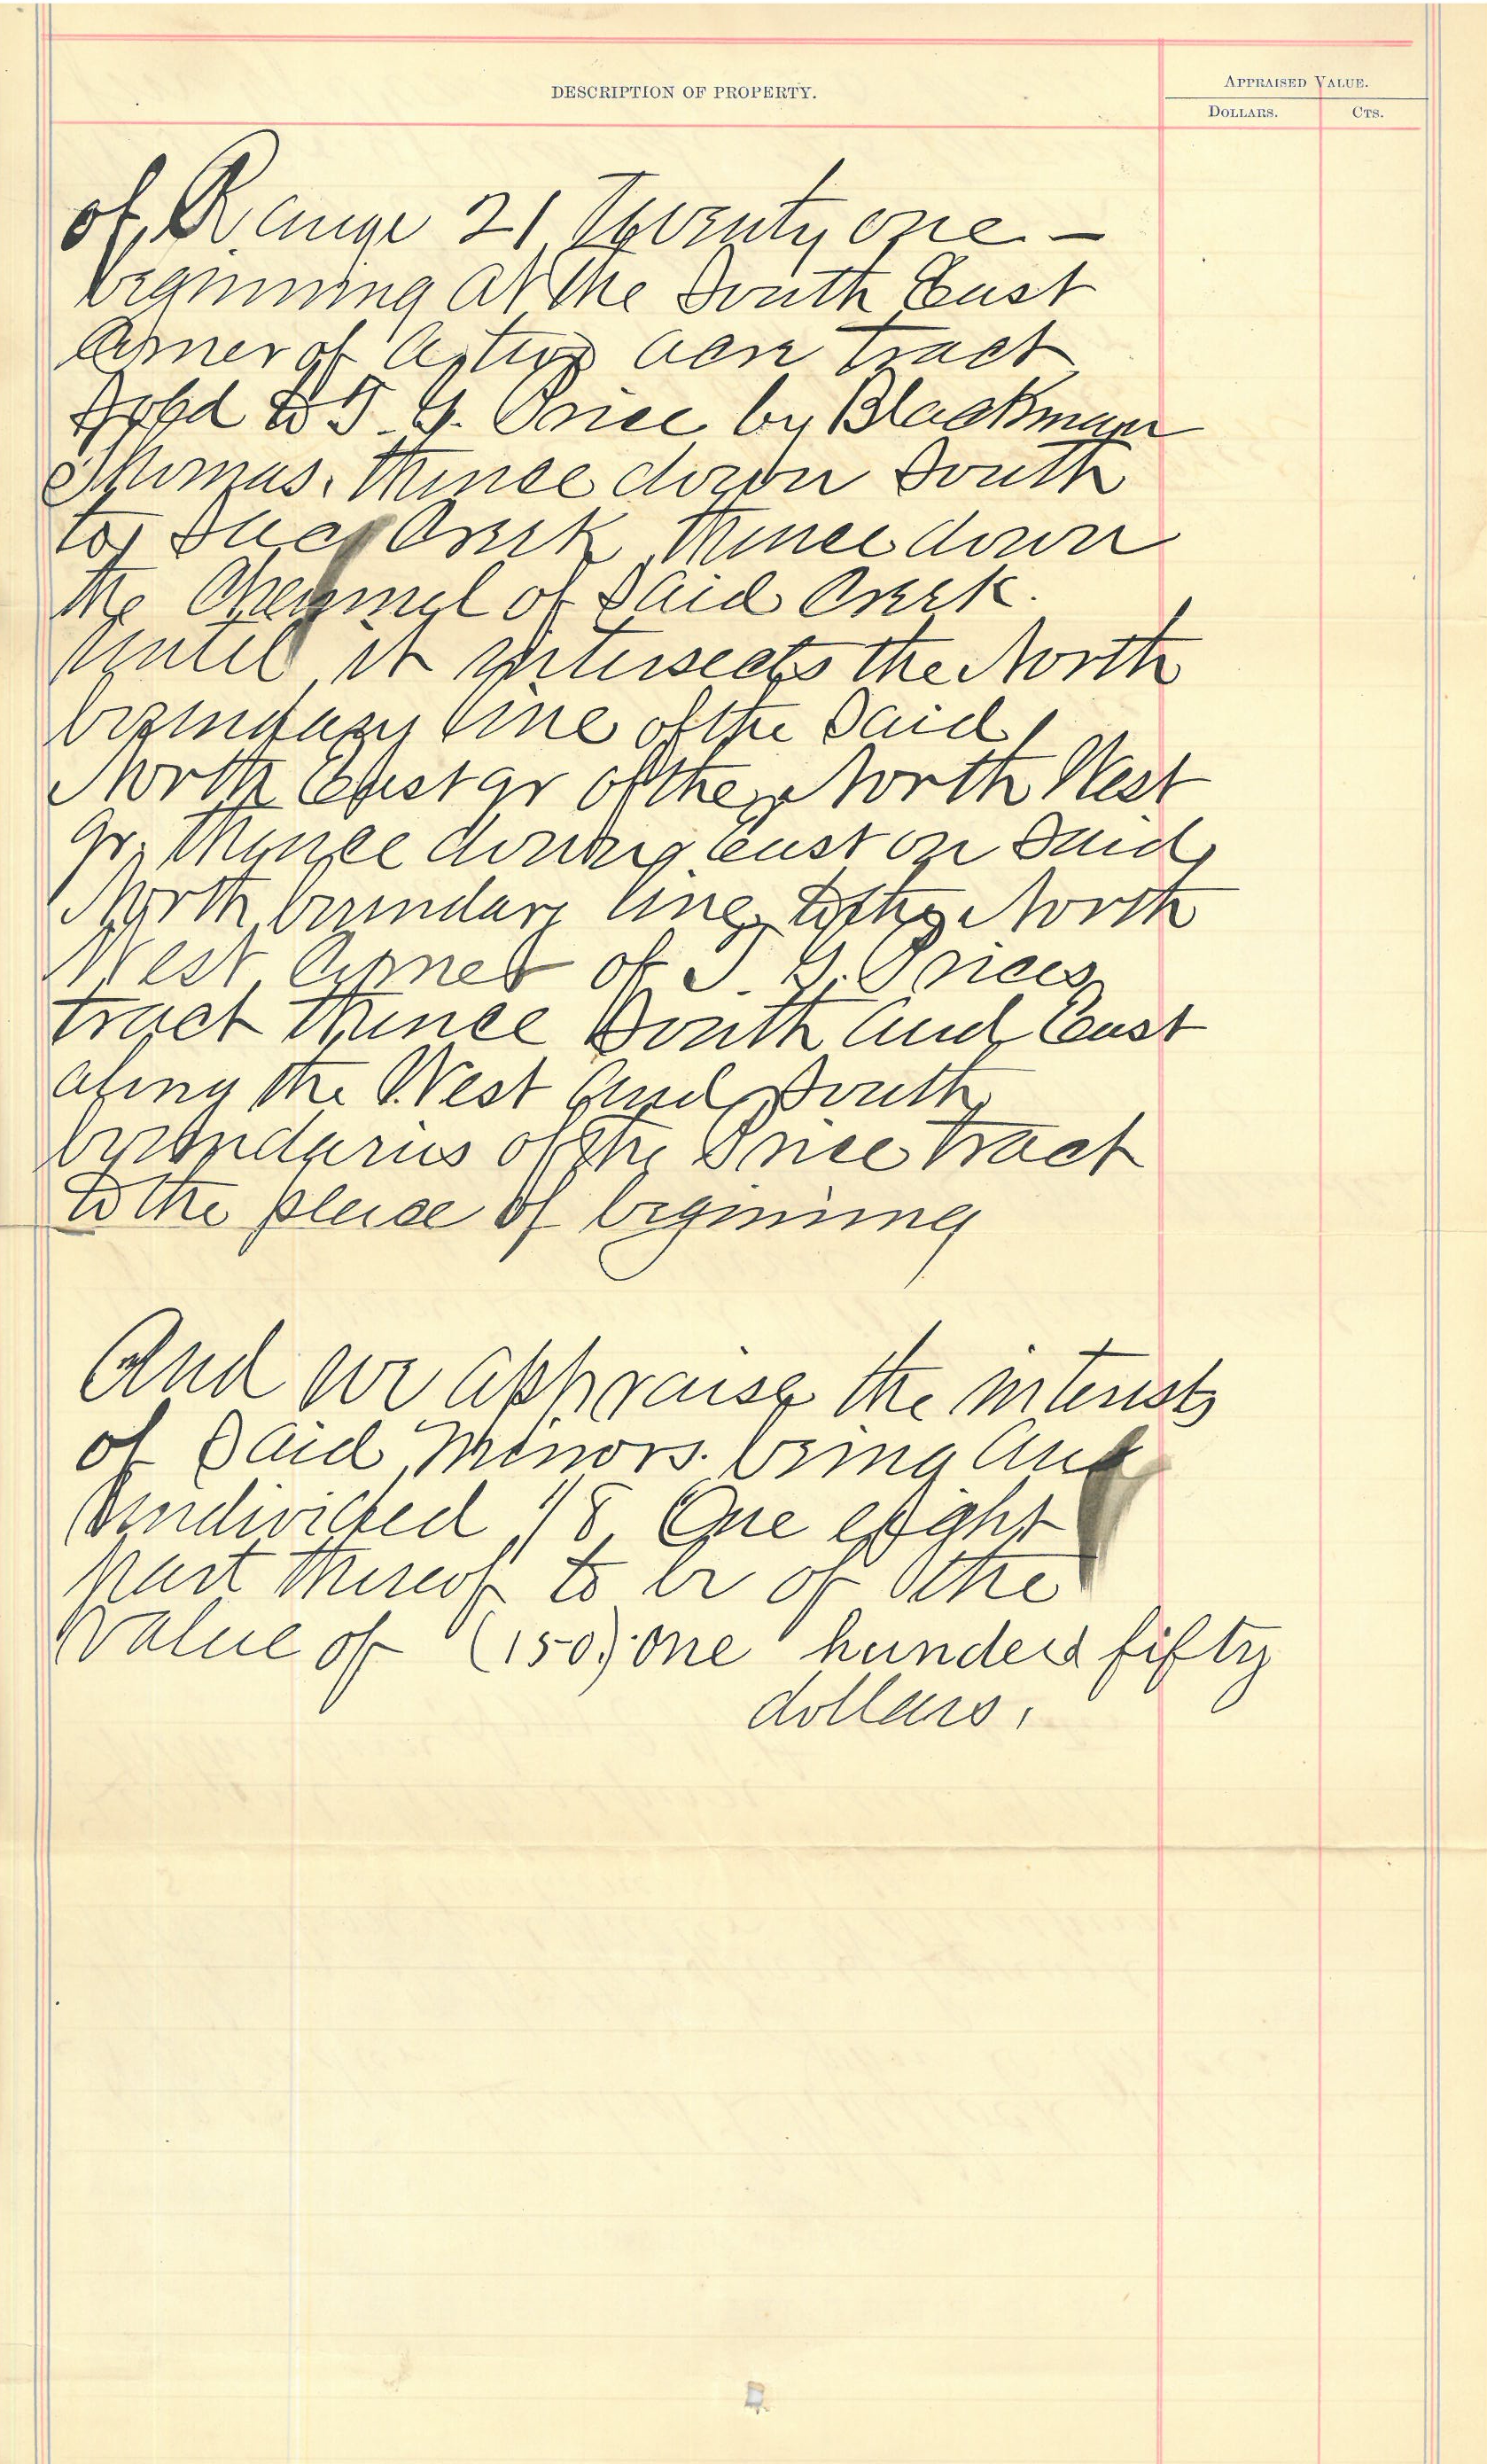 DESCRIPTION OF PROPERTY.
APPRAISED VALUE.
DOLLARS. CTS.
of Range 21 Twenty one —
beginning at the South East
Corner of a two acre tract
Sold to T. G. Price by Blackman
Thomas. thence down South
to Creek thence down
the of Said Creek.
until it intersects the North
boundary line of the Said
North East qr of the North West
qr. thence East on Said
North boundary line to the North
West Corner of T. G. Prices
tract thence South and East
along the West and South
boundaries of the Price tract
to the place of beginning
And we appraise the interests
of Said Minors. being an
undivided 1/8 One eight
part thereof to be of the
value of (150.) one hunderd fifty
dollars.